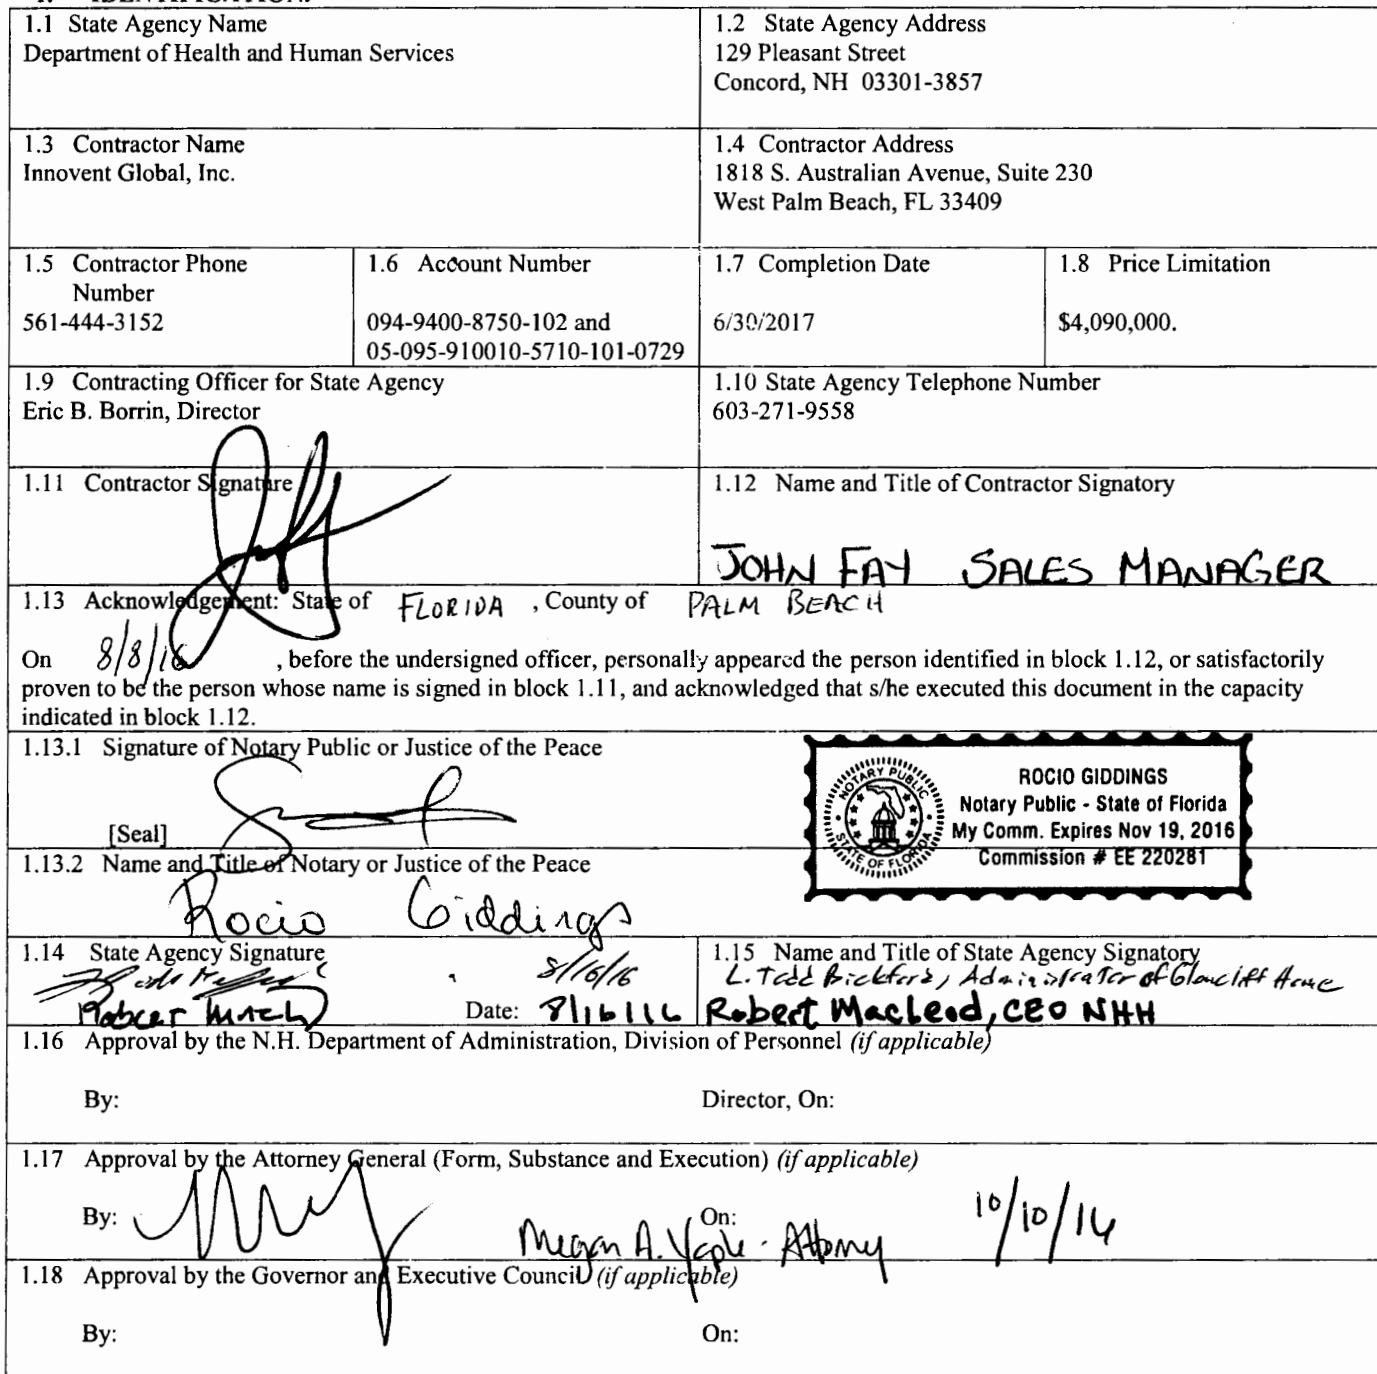 1.1 State Agency Name
Department of Health and Human Services
1.2 State Agency Address
129 Pleasant Street
Concord, NH 03301-3857
1.3 Contractor Name
Innovent Global, Inc.
1.4 Contractor Address
1818 S. Australian Avenue, Suite 230
West Palm Beach, FL 33409
1.5 Contractor Phone
Number
561-444-3152
1.6 Account Number
094-9400-8750-102 and
05-095-910010-5710-101-0729
1.7 Completion Date
6/30/2017
1.8 Price Limitation
$4,090,000.
1.9 Contracting Officer for State Agency
Eric B. Borrin, Director
1.10 State Agency Telephone Number
603-271-9558
1.11 Contractor Signature
1.12 Name and Title of Contractor Signatory
JOHN FAY SALES MANAGER
1.13 Acknowledgement: State of FLORIDA , County of PALM BEACH
On 8/8/16 , before the undersigned officer, personally appeared the person identified in block 1.12, or satisfactorily
proven to be the person whose name is signed in block 1.11, and acknowledged that s/he executed this document in the capacity
indicated in block 1.12.
1.13.1 Signature of Notary Public or Justice of the Peace
[Seal]
NOTARY PUBLIC
STATE OF FLORIDA
ROCIO GIDDINGS
Notary Public - State of Florida
My Comm. Expires Nov 19, 2016
Commission # EE 220281
1.13.2 Name and Title of Notary or Justice of the Peace
Rocio Giddings
1.14 State Agency Signature
8/16/16
Date: 8/16/16
1.15 Name and Title of State Agency Signatory
L. Todd Bickford, Administrator of Glencliff Home
Robert MacLeod, CEO NHH
1.16 Approval by the N.H. Department of Administration, Division of Personnel (if applicable)
By:
Director, On:
1.17 Approval by the Attorney General (Form, Substance and Execution) (if applicable)
By:
On:
Megan A. Yaple - Attorney 10/10/16
1.18 Approval by the Governor and Executive Council (if applicable)
By:
On: